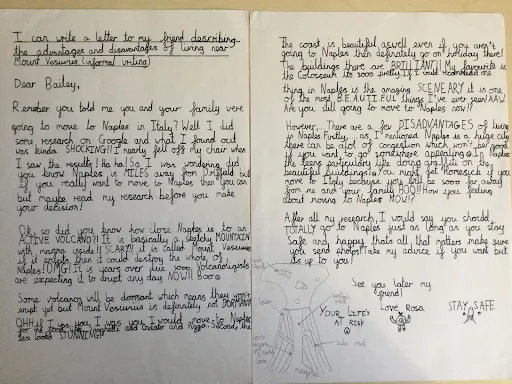 I can write a letter to my friend describing
the advantages and disadvantages of living near
Mount Vesuvius (informal writing)
Dear Bailey,
Remeber you told me you and your family were
going to move to Naples in Italy? Well I did
some research on Google and what I found out
was kinda SHOCKING!! I nearly fell off my chair when
I saw the results! Ha ha! So I was wondering did
you know Naples is MILES away from Driffield but
if you really want to move to Naples then you can
but maybe read my research before you make
your decision!
Ok, so did you know how close Naples is to an
ACTIVE VOLCANO?! It is basically a sketchy MOUNTAIN
with magma inside!! SCARY!! it is called Mount Vesuvius
if it erupts then it could destroy the whole of
Naples! OMG! It is years over due sooo volcanologists
are expecting it to erupt any day NOW!! Boo
Some volcanos will be dormant which means they won't
erupt yet but Mount Vesuvius is definately not DORMANT
OHH if I was you I would move to Naples
for the food, the spaghetti and and pizza. Second, the
sea looks STUNNING!!
The coast is beautiful aswell even if you aren't
going to Naples then definately go on holiday there!
The buildings there are BRILLIANT!! My favourite is
the Colosseum its sooo pretty. If I could recomend one
thing in Naples is the amazing SCENEARY it is one
of the most B.E.A.U.T.I.F.U.L things I've ever seen! AAW.
Are you still going to move to Naples now??
However, There are a few DISADVANTAGES of living
in Naples. Firstly, as I mentioned Naples is a huge city
there can be alot of congestion which won't be good
if you want to go somewhere appealing. In Naples
the teens particularly like doing graffiti on the
beautiful buildings. You might get homesick if you
move to Italy because you will be sooo far away
from me and your family BOO!! How you feeling
about moving to Naples NOW!?
After all my research, I would say you should
TOTALLY go to Naples just as long as you stay
Safe and happy thats all that matters make sure
you send photos! Take my advice if you want but
its up to you!
See you later my
friend!
Love Rosa
STAY SAFE
YOUR LIFE'S
AT RISK
lava
side vent
magma